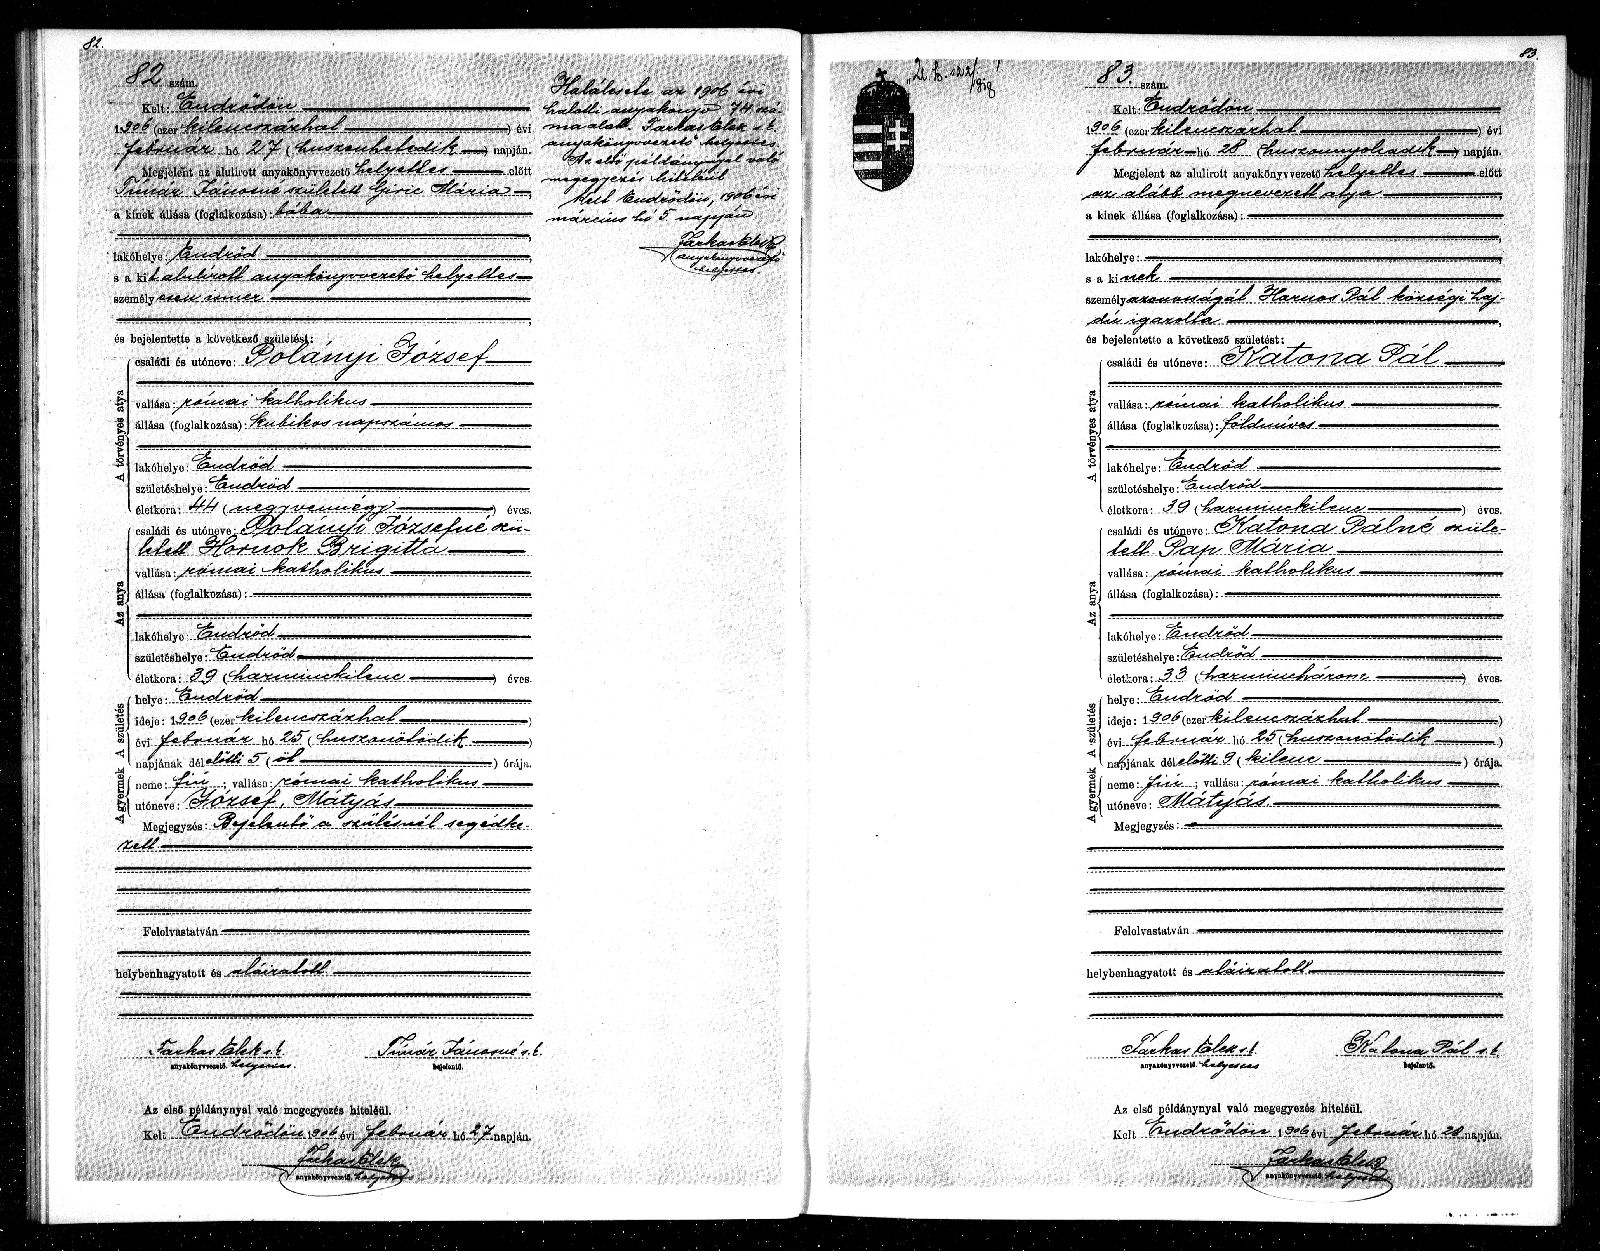 82.
82 szám.
Kelt: Endrődön
1906 (ezer kilenczszázhat) évi
február hó 27 (huszonhetedik) napján.
Megjelent az alulirott anyakönyvvezető helyettes előtt
Timár Jánosné született Giric Mária,
a kinek állása (foglalkozása): bába
lakóhelye: Endrőd,
s a kit alulírott anyakönyvvezető helyettes
személyesen ismer,
és bejelentette a következő születést:
A törvényes atya
családi és utóneve: Polányi József
vallása: római katholikus
állása (foglalkozása): kubikos napszámos
lakóhelye: Endrőd
születéshelye: Endrőd
életkora: 44 (negyvennégy) éves.
Az anya
családi és utóneve: Polányi Józsefné szü-
letett Hornok Brigitta
vallása: római katholikus
állása (foglalkozása):
lakóhelye: Endrőd
születéshelye: Endrőd
életkora: 39 (harminckilenc) éves.
A születés
helye: Endrőd
ideje: 1906 (ezer kilenczszázhat)
évi február hó 25 (huszonötödik)
napjának délelőtti 5 (öt) órája.
A gyermek
neme: fiú; vallása: római katholikus
utóneve: József, Mátyás
Megjegyzés: Bejelentő a szülésnél segédke-
zett
Felolvastatván
helybenhagyatott és aláiratott
Farkas Elek s.k. Timár Jánosné s.k.
anyakönyvvezető helyettes. bejelentő.
Az első példánynyal való megegyezés hiteléül.
Kelt Endrődön 1906 évi február hó 27 napján.
Farkas Elek
anyakönyvvezető helyettes
Halálesete az 1906 évi
halotti anyakönyv 74 szá-
ma alatt. Farkas Elek s.k.
anyakönyvvezető helyettes.
Az első példánynyal való
megegyezés hiteléül
Kelt Endrődön, 1906 évi
március hó 5. napján
Farkas Elek
anyakönyvvezető
helyettes
83.
83. szám.
Kelt: Endrődön
1906 (ezer kilenczszázhat) évi
február hó 28 (huszonnyolcadik) napján.
Megjelent az alulirott anyakönyvvezető helyettes előtt
az alább megnevezett atya
a kinek állása (foglalkozása):
lakóhelye:
s a kinek
személyazonosságát Harnos Pál községi haj-
dú igazolta,
és bejelentette a következő születést:
A törvényes atya
családi és utóneve: Katona Pál
vallása: római katholikus
állása (foglalkozása): földmíves
lakóhelye: Endrőd
születéshelye: Endrőd
életkora: 39 (harminckilenc) éves.
Az anya
családi és utóneve: Katona Pálné szüle-
tett Pap Mária
vallása: római katholikus
állása (foglalkozása):
lakóhelye: Endrőd
születéshelye: Endrőd
életkora: 33 (harminchárom) éves.
A születés
helye: Endrőd
ideje: 1906 (ezer kilenczszázhat)
évi február hó 25 (huszonötödik)
napjának délelőtti 9 (kilenc) órája.
A gyermek
neme: fiú; vallása: római katholikus
utóneve: Mátyás
Megjegyzés:
Felolvastatván
helybenhagyatott és aláiratott
Farkas Elek s.k. Katona Pál s.k.
anyakönyvvezető helyettes bejelentő.
Az első példánynyal való megegyezés hiteléül.
Kelt Endrődön 1906 évi február hó 28 napján.
Farkas Elek
anyakönyvvezető helyettes